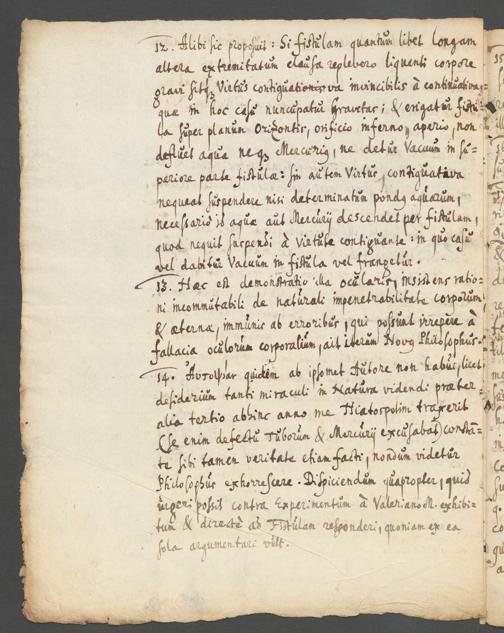 12. Alibi sic proposuit: Si fistulam quantum libet longam
altera extremitatum clausa replevero liquenti corpore
gravi sitq; Virtus contiguationis invincibilis à continuativa,
quæ in hoc casu nuncupatur Gravetas; & erigatur fistu-
la super planum Orizontis, orificio inferno aperio, non
defluet aqua neq; Mercurius, ne detur Vacuum in su=
periore parte fistulæ: sin autem Virtus contiguativa
nequeat suspendere nisi determinatum pondus aquarum,
necessario is aquæ aut Mercurij descendet per fistulam,
quod nequit suspendi à virtute contiguante: in quo casu
vel dabitur Vacuum in fistula vel frangetur.
13. Hæc est demonstratio illa ocularis, insistens ratio=
ni incommutabili de naturali impenetrabilitate corporum
& æterna, immunis ab erroribus, qui possunt irrepere à
fallacia oculorum corporalium, ait iterum Novus Philosophus.
14. quidem ab ipsomet Autore non habui, licet
desiderium tanti miraculi in Natura videndi præter
alia tertio abhinc anno me traxerit
(Se enim defectu Tuborum & Mercurij excusabat) constan=
te sibi tamen veritate etiam facti, nondum videtur
Philosophus exhorrescere. Dispiciendum quapropter, quid
urgeri possit contra Experimentum à Valeriano M. exhibi=
tum & directè ad Fistulam responderi, quoniam ex ea
sola argumentari vult.